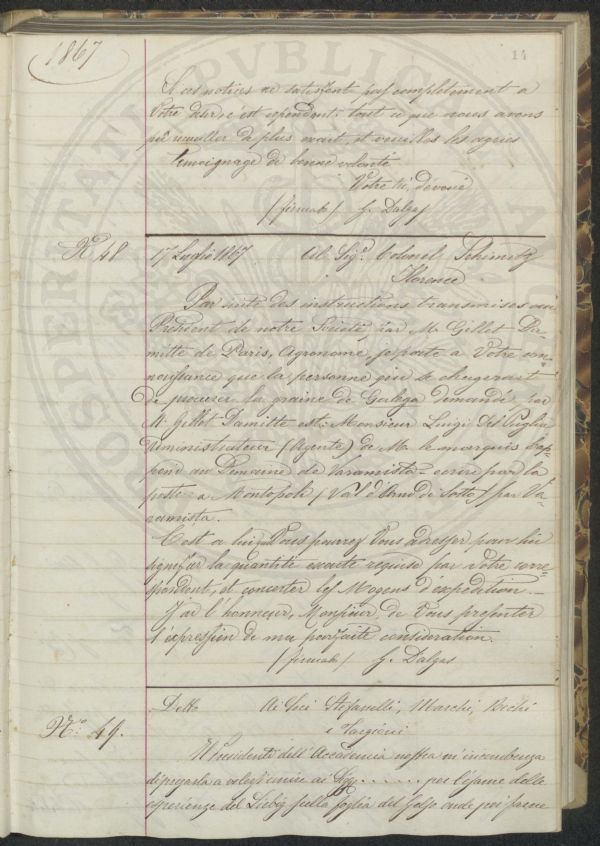 1867
14
Si ces notices ne satisfont pas complètement a
Votre désir, c'est cependant tout ce que nous avons
pû recueillir de plus exact, et veuillez les agréer
temoignage de bonne volonté
Votre tr. dévoué
(firmato) G. Dalgas
No 48 17 Luglio 1867. Al Sigr. Colonel Schimitz
Florence
Par suite des instructions transmises au
Président de notre Société par Mr. Gillet Da-
mitte de Paris, Agronome, je porte à Votre con-
noissance que la personne qui se chargerait
de procurer la graine de Galega demandé par
Mr. Gillet Damitte est: Monsieur Luigi Del Puglia
Administrateur (Agente) de Mr. le marquis Cap-
poni au Domaine de Varamista = ecrire par la
poste a Montopoli (Val d'Arno di Sotto) par Va-
ramista.
C'est a lui que Vous pourrez Vous adresser pour lui
signifier la quantité exacte requise par Votre corre-
spondent, et concerter les Moyens d'expedition._
J'ai l'honneur, Monsieur, de Vous presenter
l'expression de ma parfaite consideration.
(firmato) G. Dalgas
No. 49. Detto Ai Soci Stefanelli, Marchi, Bechi
e Targioni
Il Presidente dell'Accademia nostra m'incombenza
di pregarla a volersi unire ai Sigg ...... per l'esame delle
esperienze del Liebig sulla foglia del Gelso onde poi farne